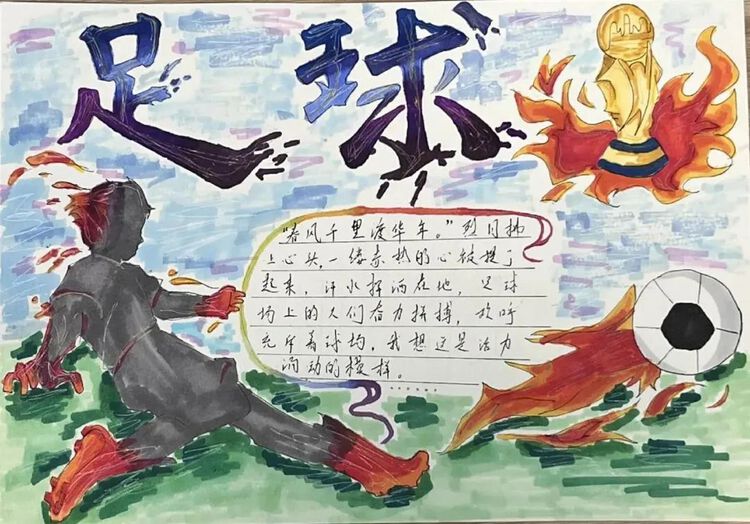 足球
“春风千里渡华年。”烈日拂
上心头,一缕炙热的心被提了
起来,汗水挥洒在地,足球
场上的人们奋力拼搏,欢呼
充斥着球场,我想这是活力
涌动的模样。